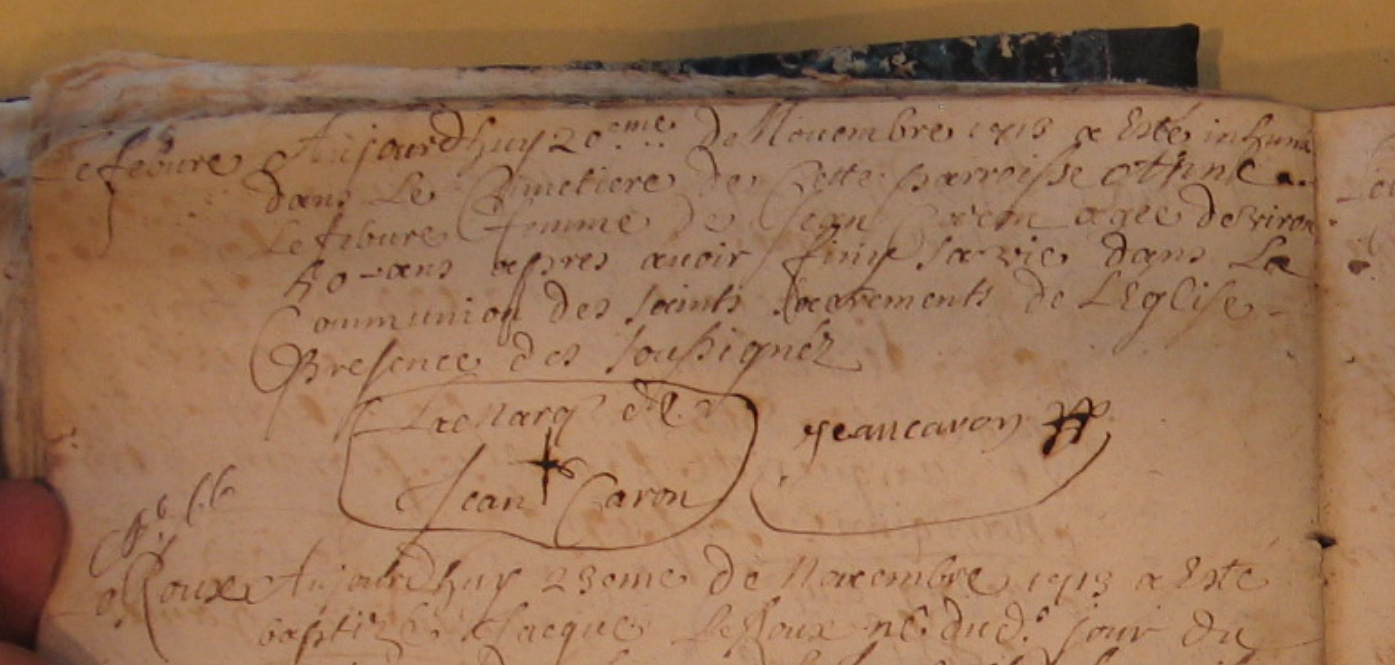 Lefebure
Aujourdhuy 20.eme. de Nouembre 1713 a Esté inhumé
dans Le Cimetiere de Cette parroisse
Lefebure femme de Jean Caron agee deviron
50 ans apres auoir finy sa vie dans La
Communion des saints sacrements de LEglise
Presence des soussignéz
La marq de
Jean Caron
jean caron
Roux Aujourdhuy 23eme de Nouembre 1713 a Esté
baptizé Jacque Le Roux né dud. jour du